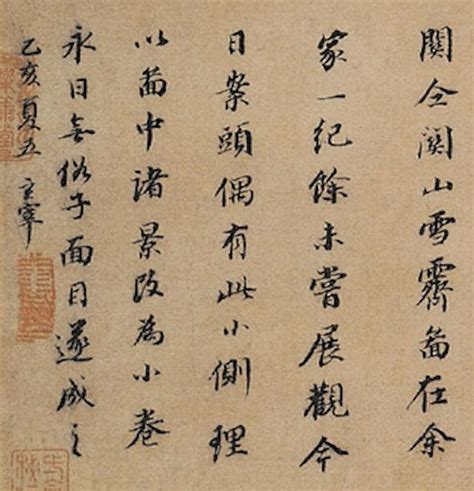 關仝關山雪霽啚在余
家一紀餘未嘗展觀今
日案頭偶有此小側理
以啚中諸景改為小卷
永日無俗子面目遂成之
乙亥夏五 玄宰